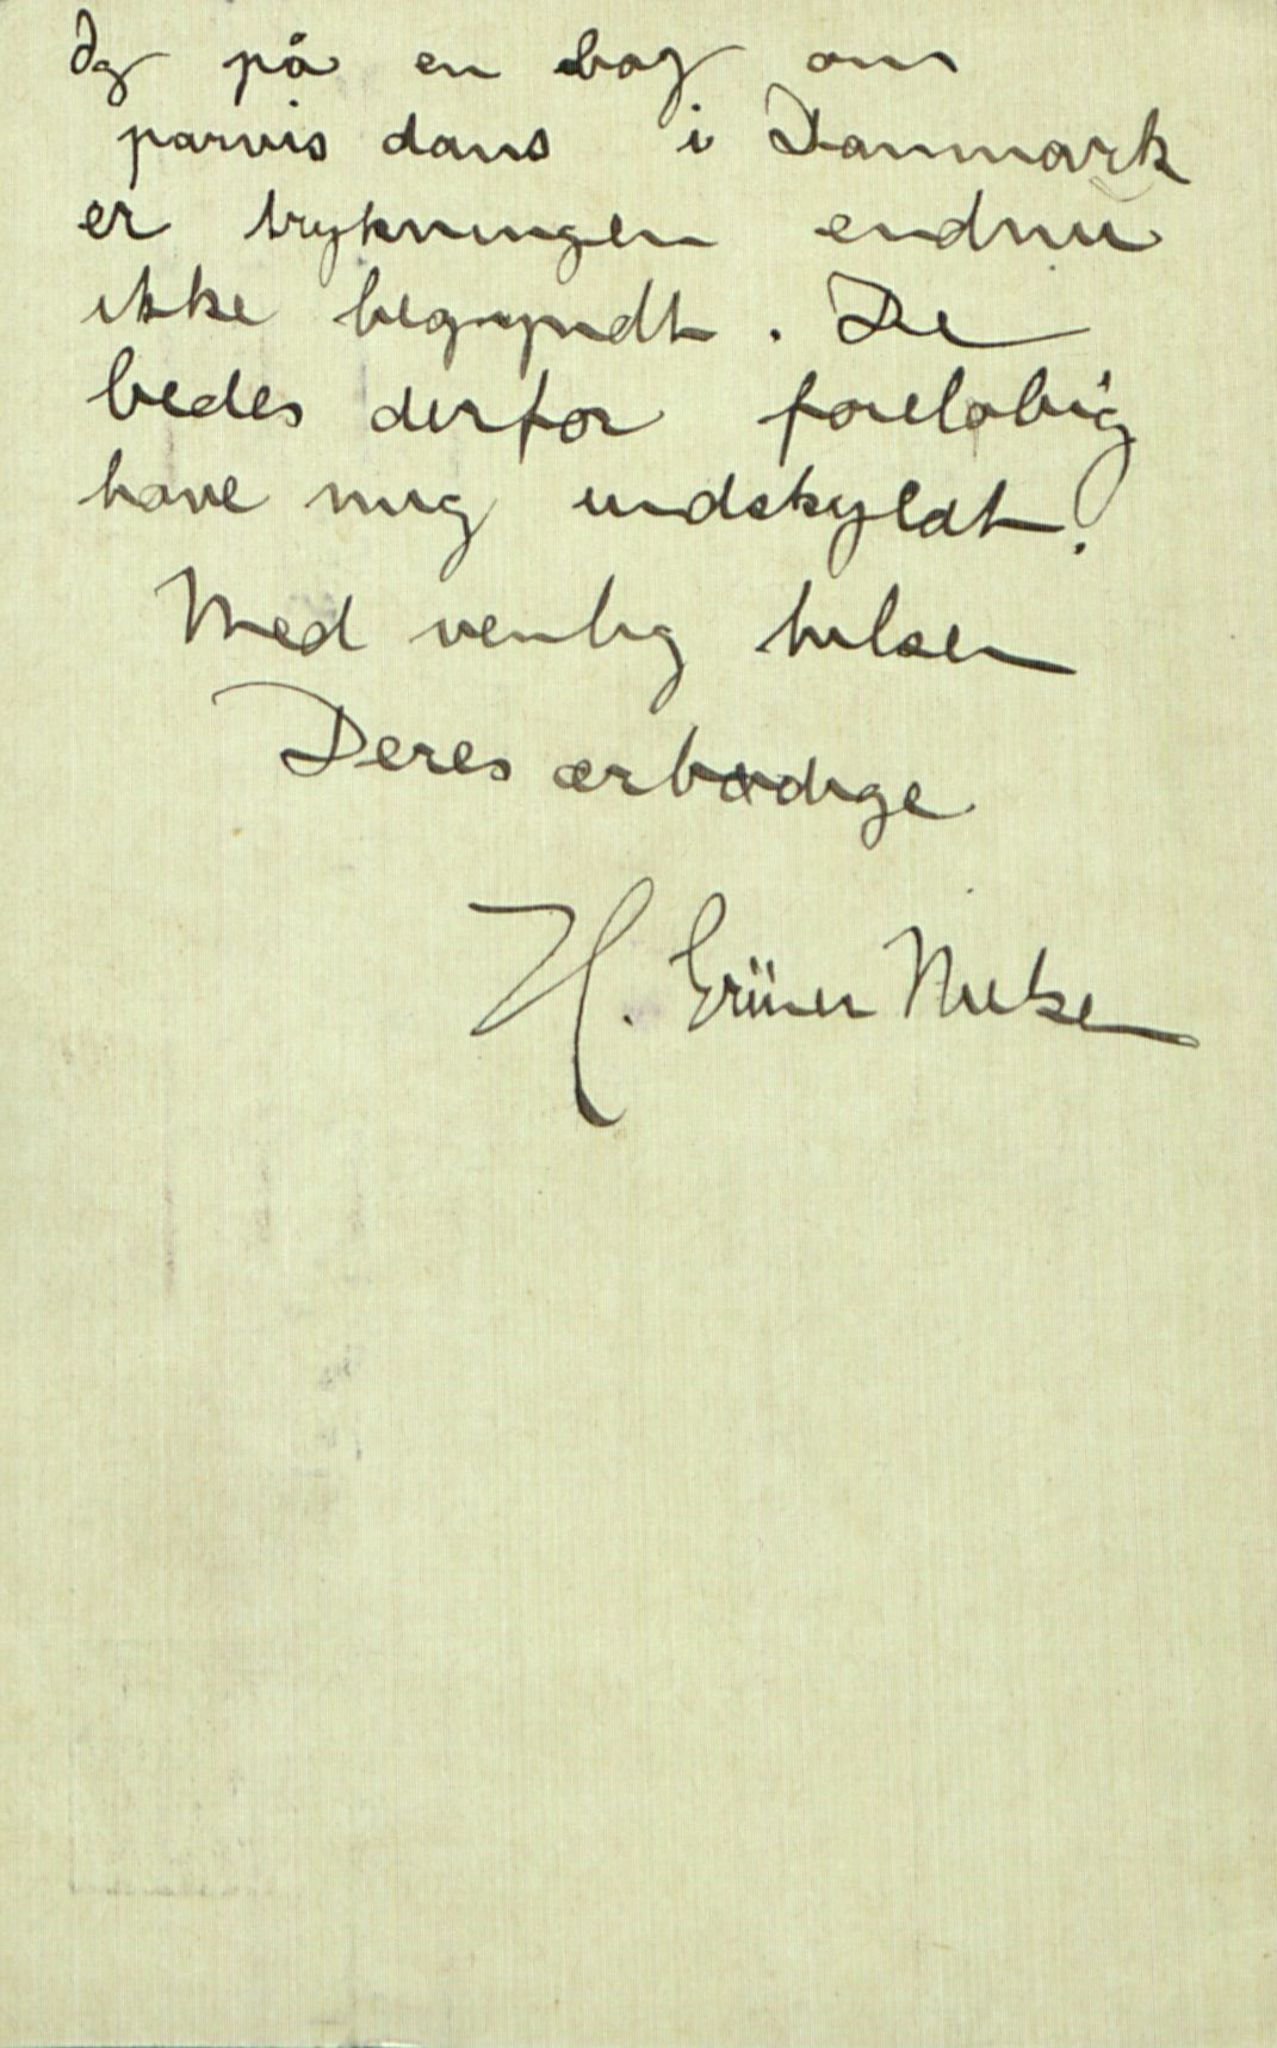 dog på en bog om
parvis dans i Danmark
er trykningen endnu
ikke begyndt. De
bedes derfor foreløbig
have mig undskyldt.
Med venlig hilsen
Deres ærbødige
H. Grüner Nielsen